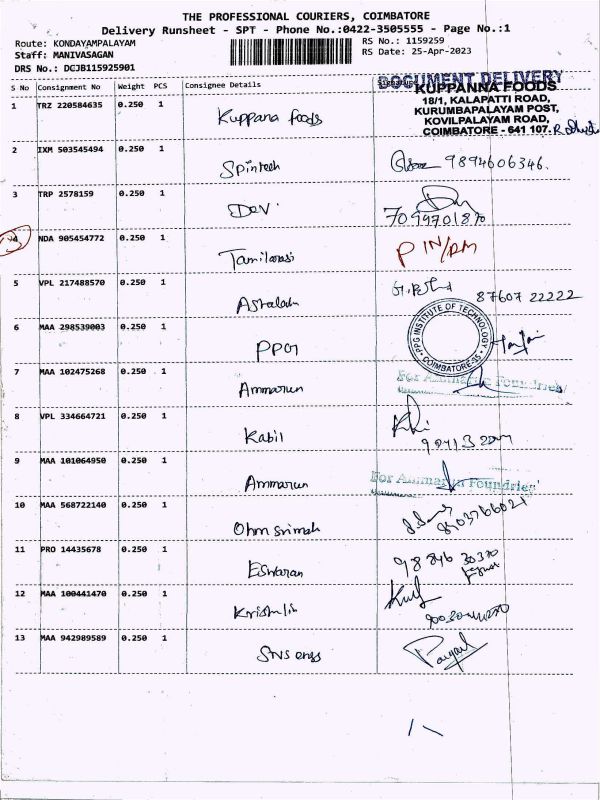 THE PROFESSIONAL COURIERS, COIMBATORE
Delivery Runsheet - SPT - Phone No.:0422-3505555 - Page No.:1
Route: KONDAYAMPALAYAM
RS No.: 1159259
Staff: MANIVASAGAN
RS Date: 25-Apr-2023
DRS No.: DCJB115925901
S No Consignment No Weight PCS Consignee Details
DOCUMENT DELIVERY
KUPPANNA FOODS
18/1, KALAPATTI ROAD,
KURUMBAPALAYAM POST,
KOVILPALAYAM ROAD,
COIMBATORE - 641 107.
1 TRZ 220584635 0.250 1 Kuppana foods
2 IXM 503545494 0.250 1 Spintech 9894606346.
3 TRP 2578159 0.250 1 Devi
4 NDA 905454772 0.250 1 Tamilarasi
5 VPL 217488570 0.250 1 87607 22222
6 MAA 298539003 0.250 1 PPG
PPG INSTITUTE OF TECHNOLOGY
COIMBATORE-35
7 MAA 102475268 0.250 1 Ammarun
For Ammarun Foundries
8 VPL 334664721 0.250 1 Kabil
9 MAA 101064950 0.250 1 Ammarun
For Ammarun Foundries
10 MAA 568722140 0.250 1
11 PRO 14435678 0.250 1 Eswaran
12 MAA 100441470 0.250 1
13 MAA 942989589 0.250 1 SNS engg